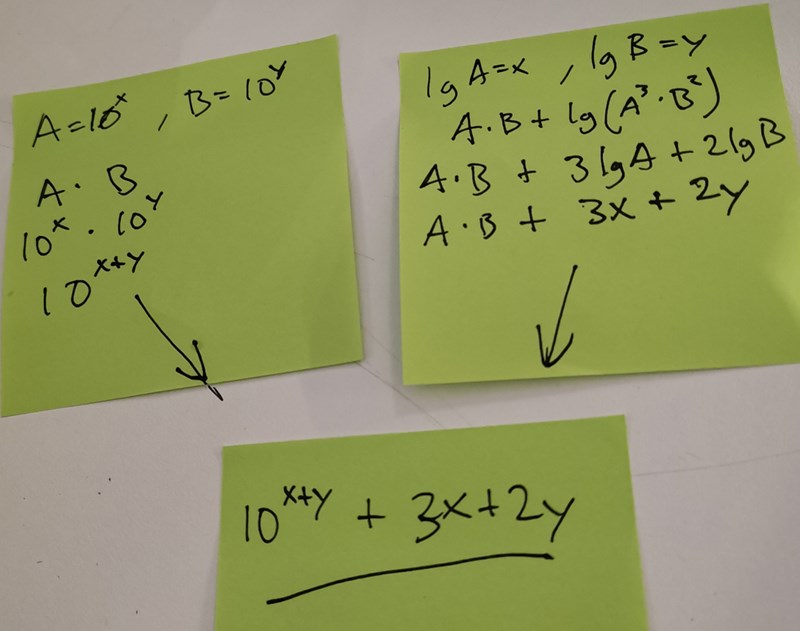 A=10ˣ , B=10ʸ
A · B
10ˣ · 10ʸ
10ˣ⁺ʸ
lg A=x , lg B=y
A·B + lg(A³·B²)
A·B + 3lgA + 2lgB
A·B + 3x + 2y
10ˣ⁺ʸ + 3x+2y